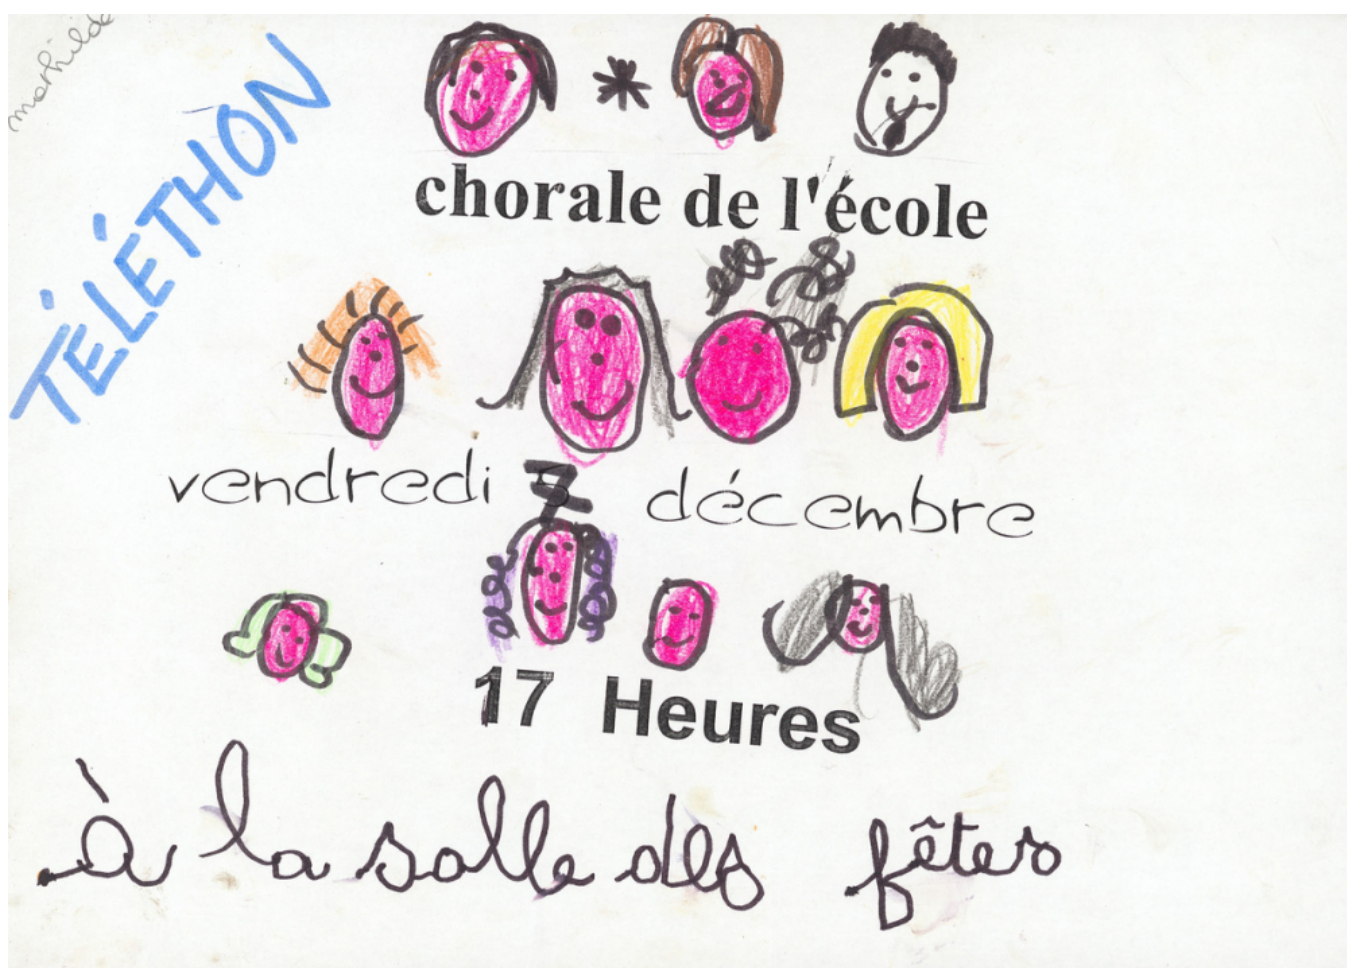 mathilde
TÉLÉTHON
chorale de l'école
vendredi 7 décembre
17 Heures
à la salle des fêtes